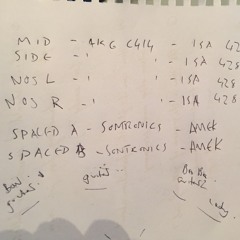 MID - AKG C414 - ISA 428
SIDE - " - ISA 428
NOS L - " - ISA 428
NOS R - " - ISA 428
SPACED A - SONTRONICS - AMEK
SPACED B - SONTRONICS - AMEK
guitar